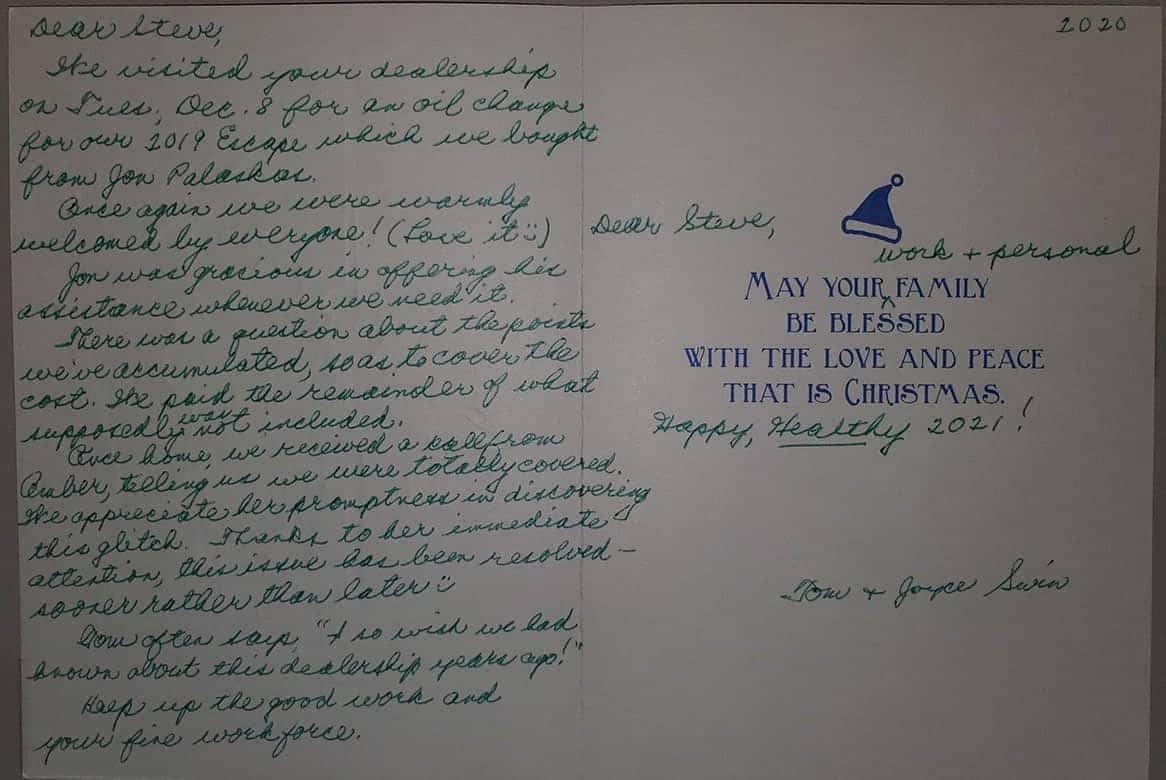 Dear Steve,
We visited your dealership
on Tues, Dec. 8 for an oil change
for our 2019 Escape which we bought
from Jon Palaskas.
Once again we were warmly
welcomed by everyone! (Love it :))
Jon was gracious in offering his
assistance whenever we need it.
There was a question about the points
we've accumulated, so as to cover the
cost. We paid the remainder of what
supposedly was not included.
Once home, we received a call from
Amber, telling us we were totally covered.
We appreciate her promptness in discovering
this glitch. Thanks to her immediate
attention, this issue has been resolved –
sooner rather than later :)
Tom often says, "I so wish we had
known about this dealership years ago!"
Keep up the good work and
your fine workforce.
2020
Dear Steve,
work + personal
May your ^ family
be blessed
with the love and peace
that is Christmas.
Happy, Healthy 2021!
Tom + Joyce